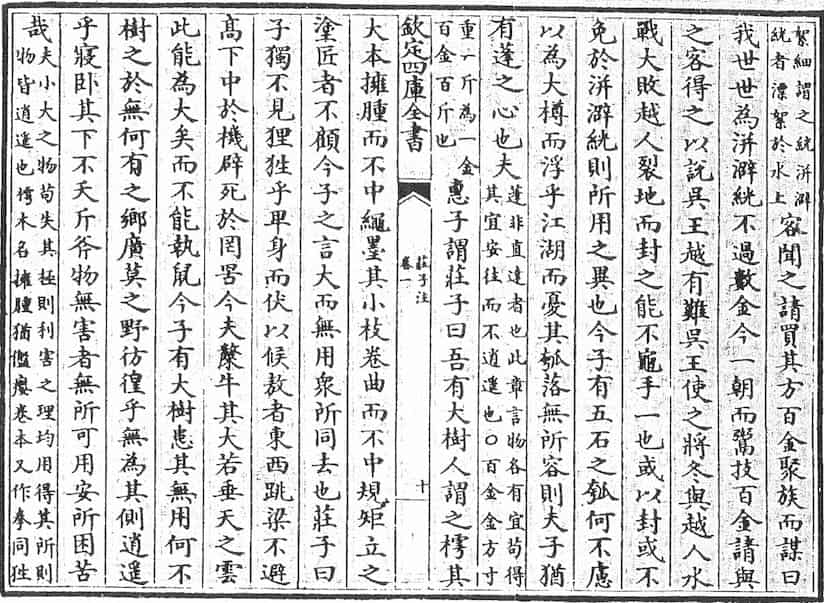 絮細謂之絖洴澼
絖者漂絮於水上
客聞之請買其方百金聚族而謀曰
我世世為洴澼絖不過數金今一朝而鬻技百金請與
之客得之以說吳王越有難吳王使之將冬與越人水
戰大敗越人裂地而封之能不龜手一也或以封或不
免於洴澼絖則所用之異也今子有五石之瓠何不慮
以為大樽而浮乎江湖而憂其瓠落無所容則夫子猶
有蓬之心也夫
蓬非直達者也此章言物各有宜苟得
其宜安往而不逍遥也〇百金金方寸
重一斤為一金
百金百斤也
惠子謂莊子曰吾有大樹人謂之樗其
欽定四庫全書
莊子注
卷一
十
大本擁腫而不中繩墨其小枝卷曲而不中規矩立之
塗匠者不顧今子之言大而無用衆所同去也莊子曰
子獨不見狸狌乎卑身而伏以候敖者東西跳梁不避
高下中於機辟死於罔罟今夫斄牛其大若垂天之雲
此能為大矣而不能執鼠今子有大樹患其無用何不
樹之於無何有之鄉廣莫之野彷徨乎無為其側逍遥
乎寢卧其下不夭斤斧物無害者無所可用安所困苦
哉
夫小大之物苟失其極則利害之理均用得其所則
物皆逍遥也樗木名擁腫猶癭卷本又作拳同狌